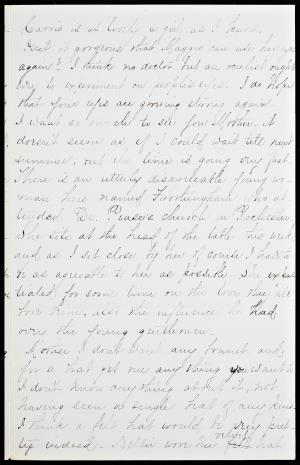 Carrie is as lovely a girl as I know.
Isn't it gorgeous that Maggie can use her eyes
again? I think no doctor but an oculist ought
ever to experiment on people's eyes. I do hope
that your eyes are growing strong again.
I want so much to see you Mother. It
doesn't seem as if I could wait till next
summer, but the time is going very fast.
There is an utterly disagreeable young wo-
man here named who at-
tended Dr. church in Rochester.
She sits at the head of the table this week
and as I sit close by her of course I have to
be as agreeable to her as possible. She expa-
tiated for some time on the love they all
bore him, also the influence he had
over the young gentlemen.
Mother I don't want any bonnet and
for a hat get me anything you want to
I don't know anything about it, not
having seen a single hat of any kind
I think a felt hat would be very pret-
ty indeed. Nellie wore her velvet hat